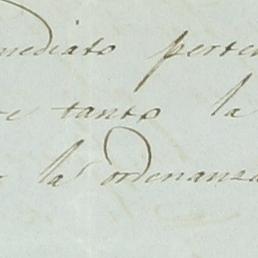 mediato perten
e tanto la
la ordenanza